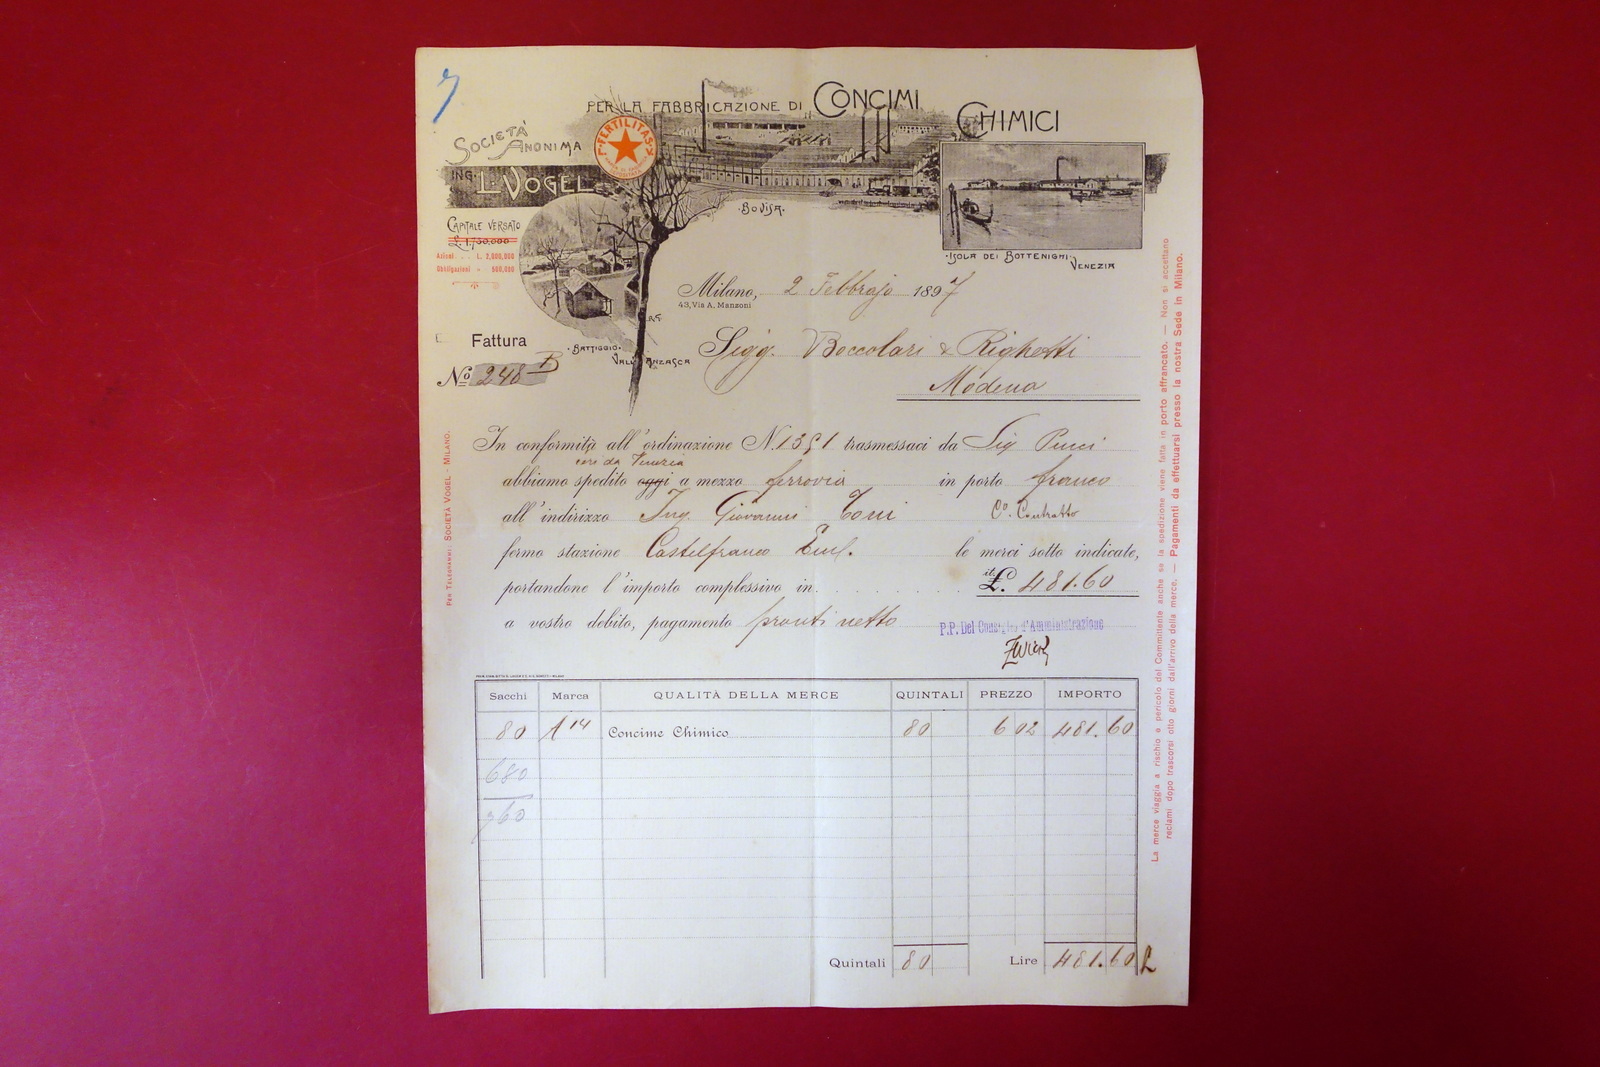 PER LA FABBRICAZIONE DI CONCIMI CHIMICI
SOCIETÀ ANONIMA
FERTILITAS
ING. L. VOGEL
CAPITALE VERSATO
£. 1,750,000
Azioni . . . L. 2,000,000
Obbligazioni - 500,000
·BOVISA·
·ISOLA DEI BOTTENIGHI·
VENEZIA
·BATTIGGIO·
VALLE ANZASCA
Milano, 2 Febbrajo 1897
43, Via A. Manzoni
Fattura
No 248 B
Sigg. Boccolari & Righetti
Modena
In conformità all'ordinazione N. 1351 trasmessaci da Sig Pucci
ieri da Venezia
abbiamo spedito oggi a mezzo ferrovia in porto franco
all'indirizzo Ing. Giovanni Toni Co. Contratto
fermo stazione Castelfranco Emil. le merci sotto indicate,
portandone l'importo complessivo in . . . . . . . . . it. £. 481.60
a vostro debito, pagamento pronti netto
P.P. Del Consiglio d'Amministrazione
Sacchi Marca QUALITÀ DELLA MERCE QUINTALI PREZZO IMPORTO
80 114 Concime Chimico 80 6 02 481.60
680
760
Quintali 80 Lire 481.60
PER TELEGRAMMI: SOCIETÀ VOGEL - MILANO.
La merce viaggia a rischio e pericolo del Committente anche se la spedizione viene fatta in porto affrancato. — Non si accettano
reclami dopo trascorsi otto giorni dall'arrivo della merce. — Pagamenti da effettuarsi presso la nostra Sede in Milano.